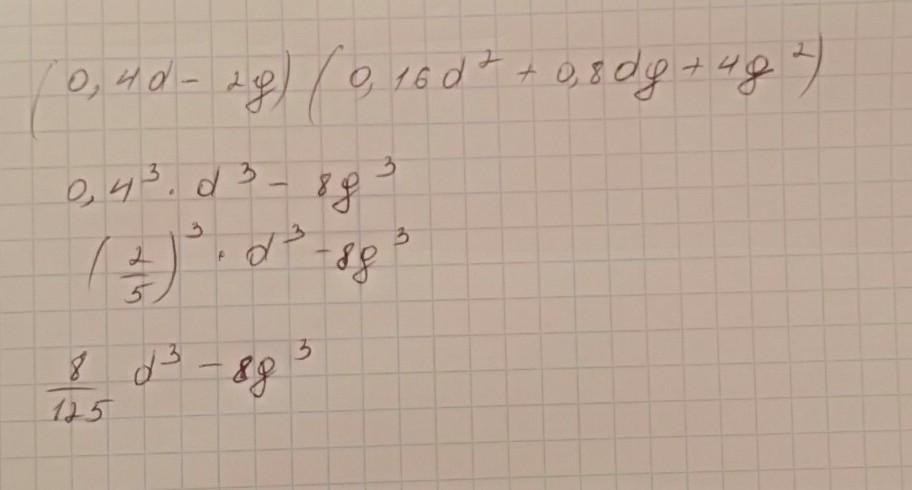 (0,4d - 2g)(0,16d² + 0,8dg + 4g²)
0,4³ · d³ - 8g³
(2/5)³ · d³ - 8g³
8/125 d³ - 8g³